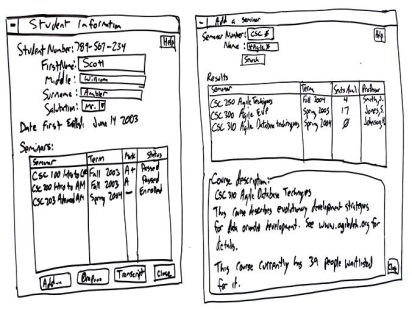 Student Information
Help
Student Number: 789-507-234
First Name: Scott
Middle: William
Surname: Ambler
Salutation: Mr.
Date First Enrolled: June 14 2003
Seminars:
Seminar Term Mark Status
CSC 100 Intro to CS Fall 2003 A+ Passed
CSC 200 Intro to AM Fall 2003 A Passed
CSC 203 Advanced AM Spring 2004 — Enrolled
Add... Drop... Transcript Close
Add a seminar
Seminar Number: CSC #
Help
Name: *Agile*
Search
Results
Seminar Term Seats Avail Professor
CSC 250 Agile Techniques Fall 2004 4 Smith, J.
CSC 300 Agile EUP Spring 2005 17 Jones, S.
CSC 310 Agile Database techniques Spring 2004 Ø Johnson,
Course description:
CSC 310 Agile Database Techniques
This course describes evolutionary development strategies
for data oriented development. See www.agiledata.org for
details.
This course currently has 39 people waitlisted
for it.
Close